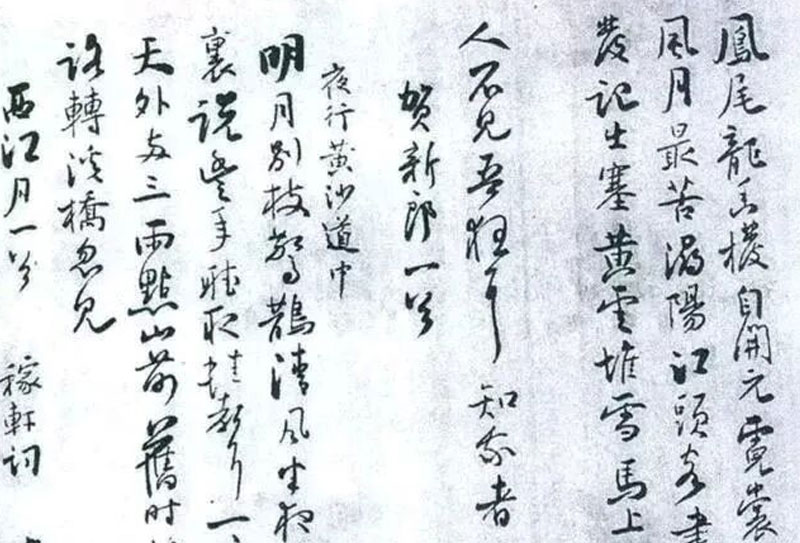 鳳尾龍香撥自開元霓裳
風月最苦潯陽江頭客畫
發記出塞黄雲堆雪馬上
人不見吾狂耳知我者
賀新郎一首
夜行黄沙道中
明月別枝驚鵲清風半夜
裏説豐年聽取蛙聲一
天外三兩點山前舊時
路轉溪橋忽見
西江月一首 稼軒詞